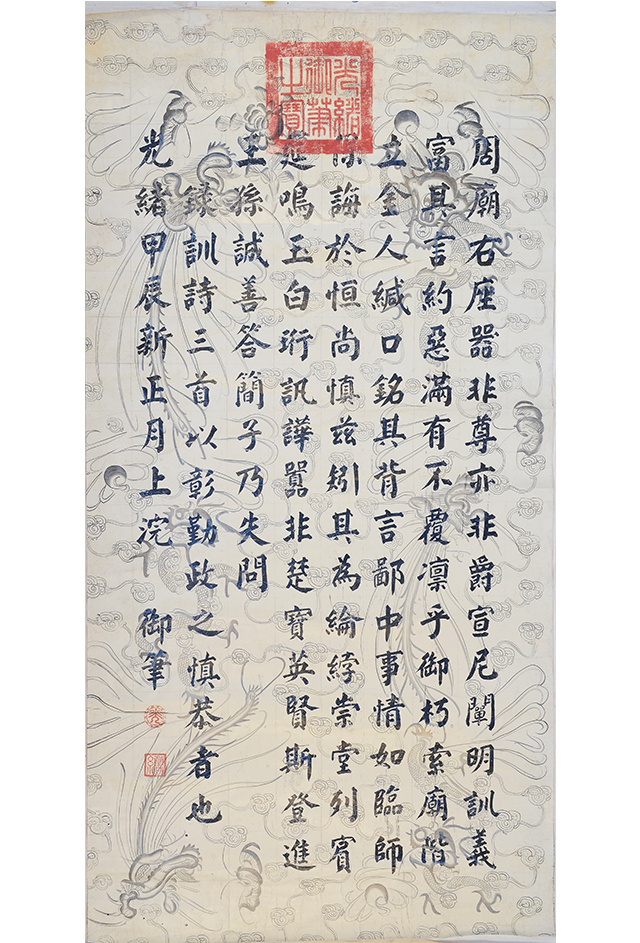 周廟右座器非尊亦非爵宣尼闡明訓義
富其言約惡滿有不覆凜乎御朽索廟階
立金人緘口銘其背言鄙中事情如臨師
保誨於恒尚慎茲矧其為綸綍崇堂列賓
筵鳴玉白珩訊譁囂非楚寶英賢斯登進
王孫誠善答簡子乃失問
錄訓詩三首以彰勤政之慎恭者也
光緒甲辰新正月上浣 御筆
光緒御筆之寶